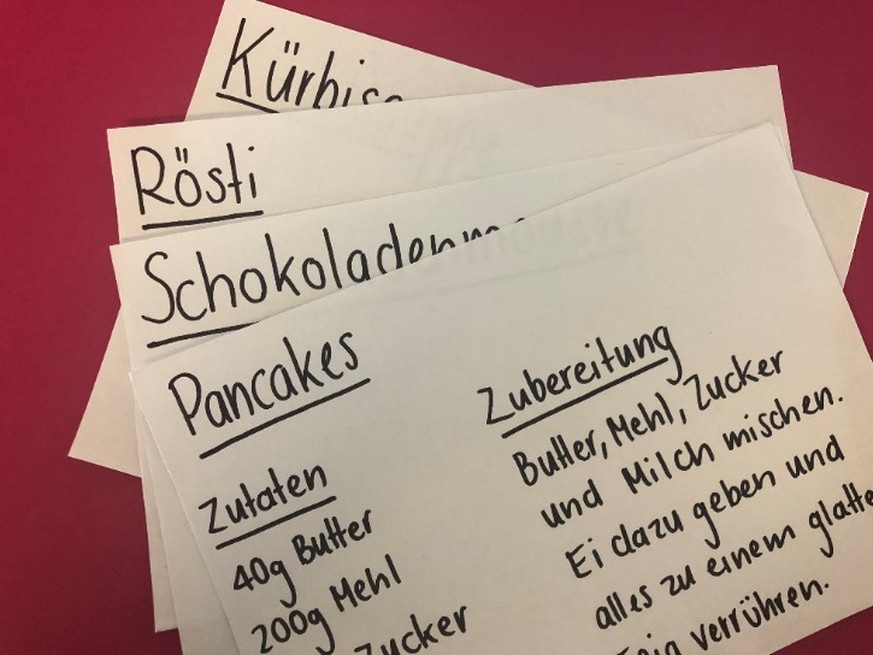 Kürbis
Rösti
Schokoladenm
Pancakes
Zutaten
40g Butter
200g Mehl
Zucker
Zubereitung
Butter, Mehl, Zucker
und Milch mischen.
Ei dazu geben und
alles zu einem glatte
verrühren.